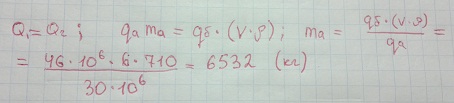 Q₁ = Q₂ ; qa ma = qб · (V · ρ) ; ma = qб · (V · ρ) / qa =
= 46 · 10⁶ · 6 · 710 / 30 · 10⁶ = 6532 (кг)